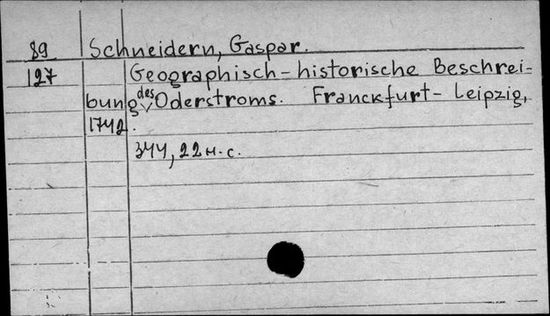 89 Schneidern, Gaspar.
127 Geographisch-historische Beschrei-
bung des Oderstroms. Franckfurt-Leipzig,
1742.
344, 22 н. с.